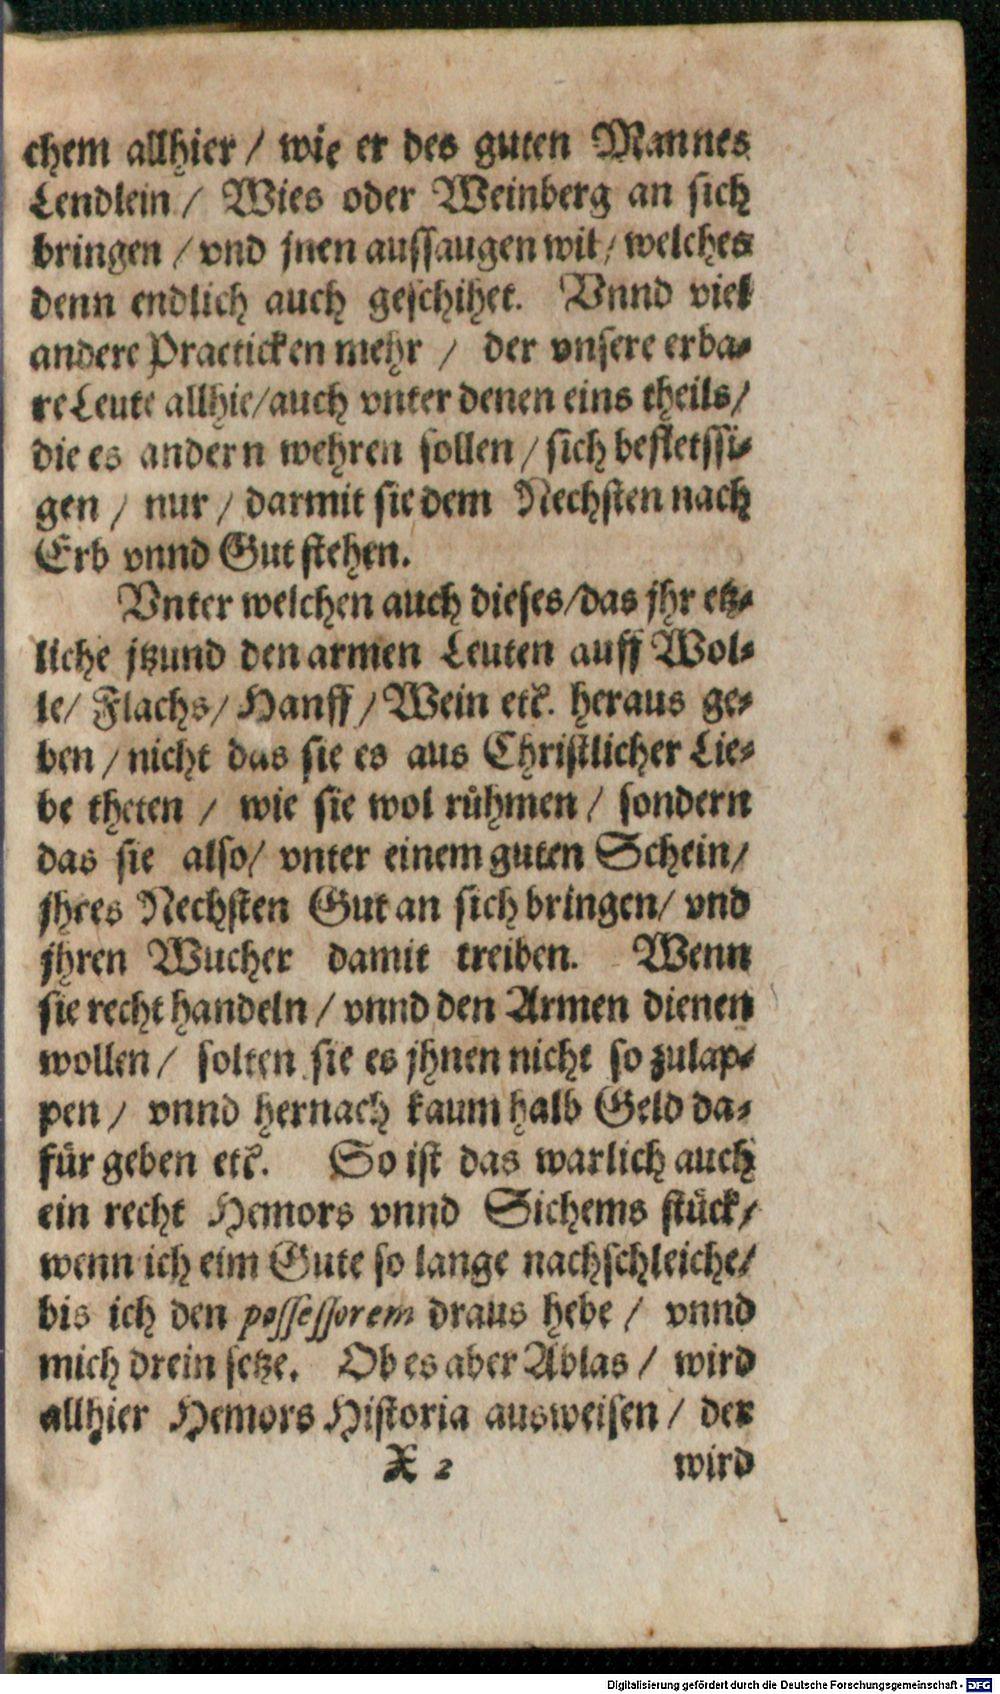 chem allhier / wie er des guten Mannes
Lendlein / Wies oder Weinberg an sich
bringen / vnd jnen aussaugen wil / welches
denn endlich auch geschihet. Vnnd viel
andere Practicken mehr / der vnsere erba-
re Leute allhie / auch vnter denen eins theils /
die es andern wehren sollen / sich befleissi-
gen / nur / darmit sie dem Nechsten nach
Erb vnnd Gut stehen.
Vnter welchen auch dieses / das jhr etz-
liche jtzund den armen Leuten auff Wol-
le / Flachs / Hanff / Wein etc. heraus ge-
ben / nicht das sie es aus Christlicher Lie-
be theten / wie sie wol rühmen / sondern
das sie also / vnter einem guten Schein /
jhres Nechsten Gut an sich bringen / vnd
jhren Wucher damit treiben. Wenn
sie recht handeln / vnnd den Armen dienen
wollen / solten sie es jhnen nicht so zulap-
pen / vnnd hernach kaum halb Geld da-
für geben etc. So ist das warlich auch
ein recht Hemors vnnd Sichems stück /
wenn ich eim Gute so lange nachschleiche /
bis ich den possessorem draus hebe / vnnd
mich drein setze. Ob es aber Ablas / wird
allhier Hemors Historia ausweisen / der
X 2 wird
Digitalisierung gefördert durch die Deutsche Forschungsgemeinschaft - DFG